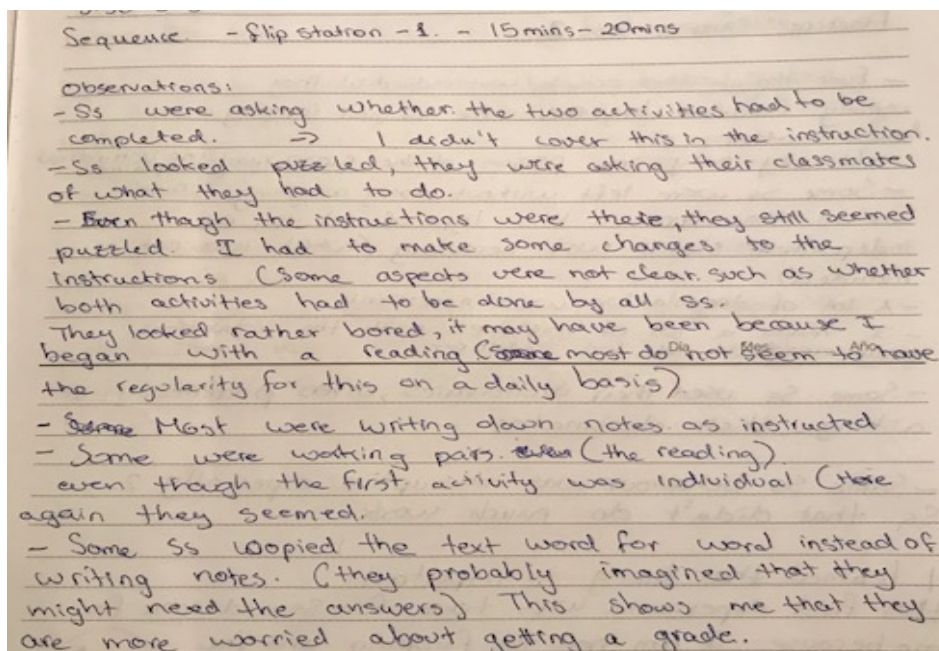 Sequence - flip station - 1. - 15 mins - 20mins
Observations:
- Ss were asking whether the two activities had to be
completed. => I didn't cover this in the instruction.
- Ss looked puzzled, they were asking their classmates
of what they had to do.
- Even though the instructions were there, they still seemed
puzzled. I had to make some changes to the
instructions (some aspects were not clear. such as whether
both activities had to be done by all ss.
They looked rather bored, it may have been because I
began with a reading (some most do not seem to have
Dia Mes Año
the regularity for this on a daily basis)
- Some Most were writing down notes as instructed
- Some were working pairs. (the reading)
even though the first activity was individual (Here
again they seemed.
- Some Ss coopied the text word for word instead of
writing notes. (they probably imagined that they
might need the answers) This shows me that they
are more worried about getting a grade.